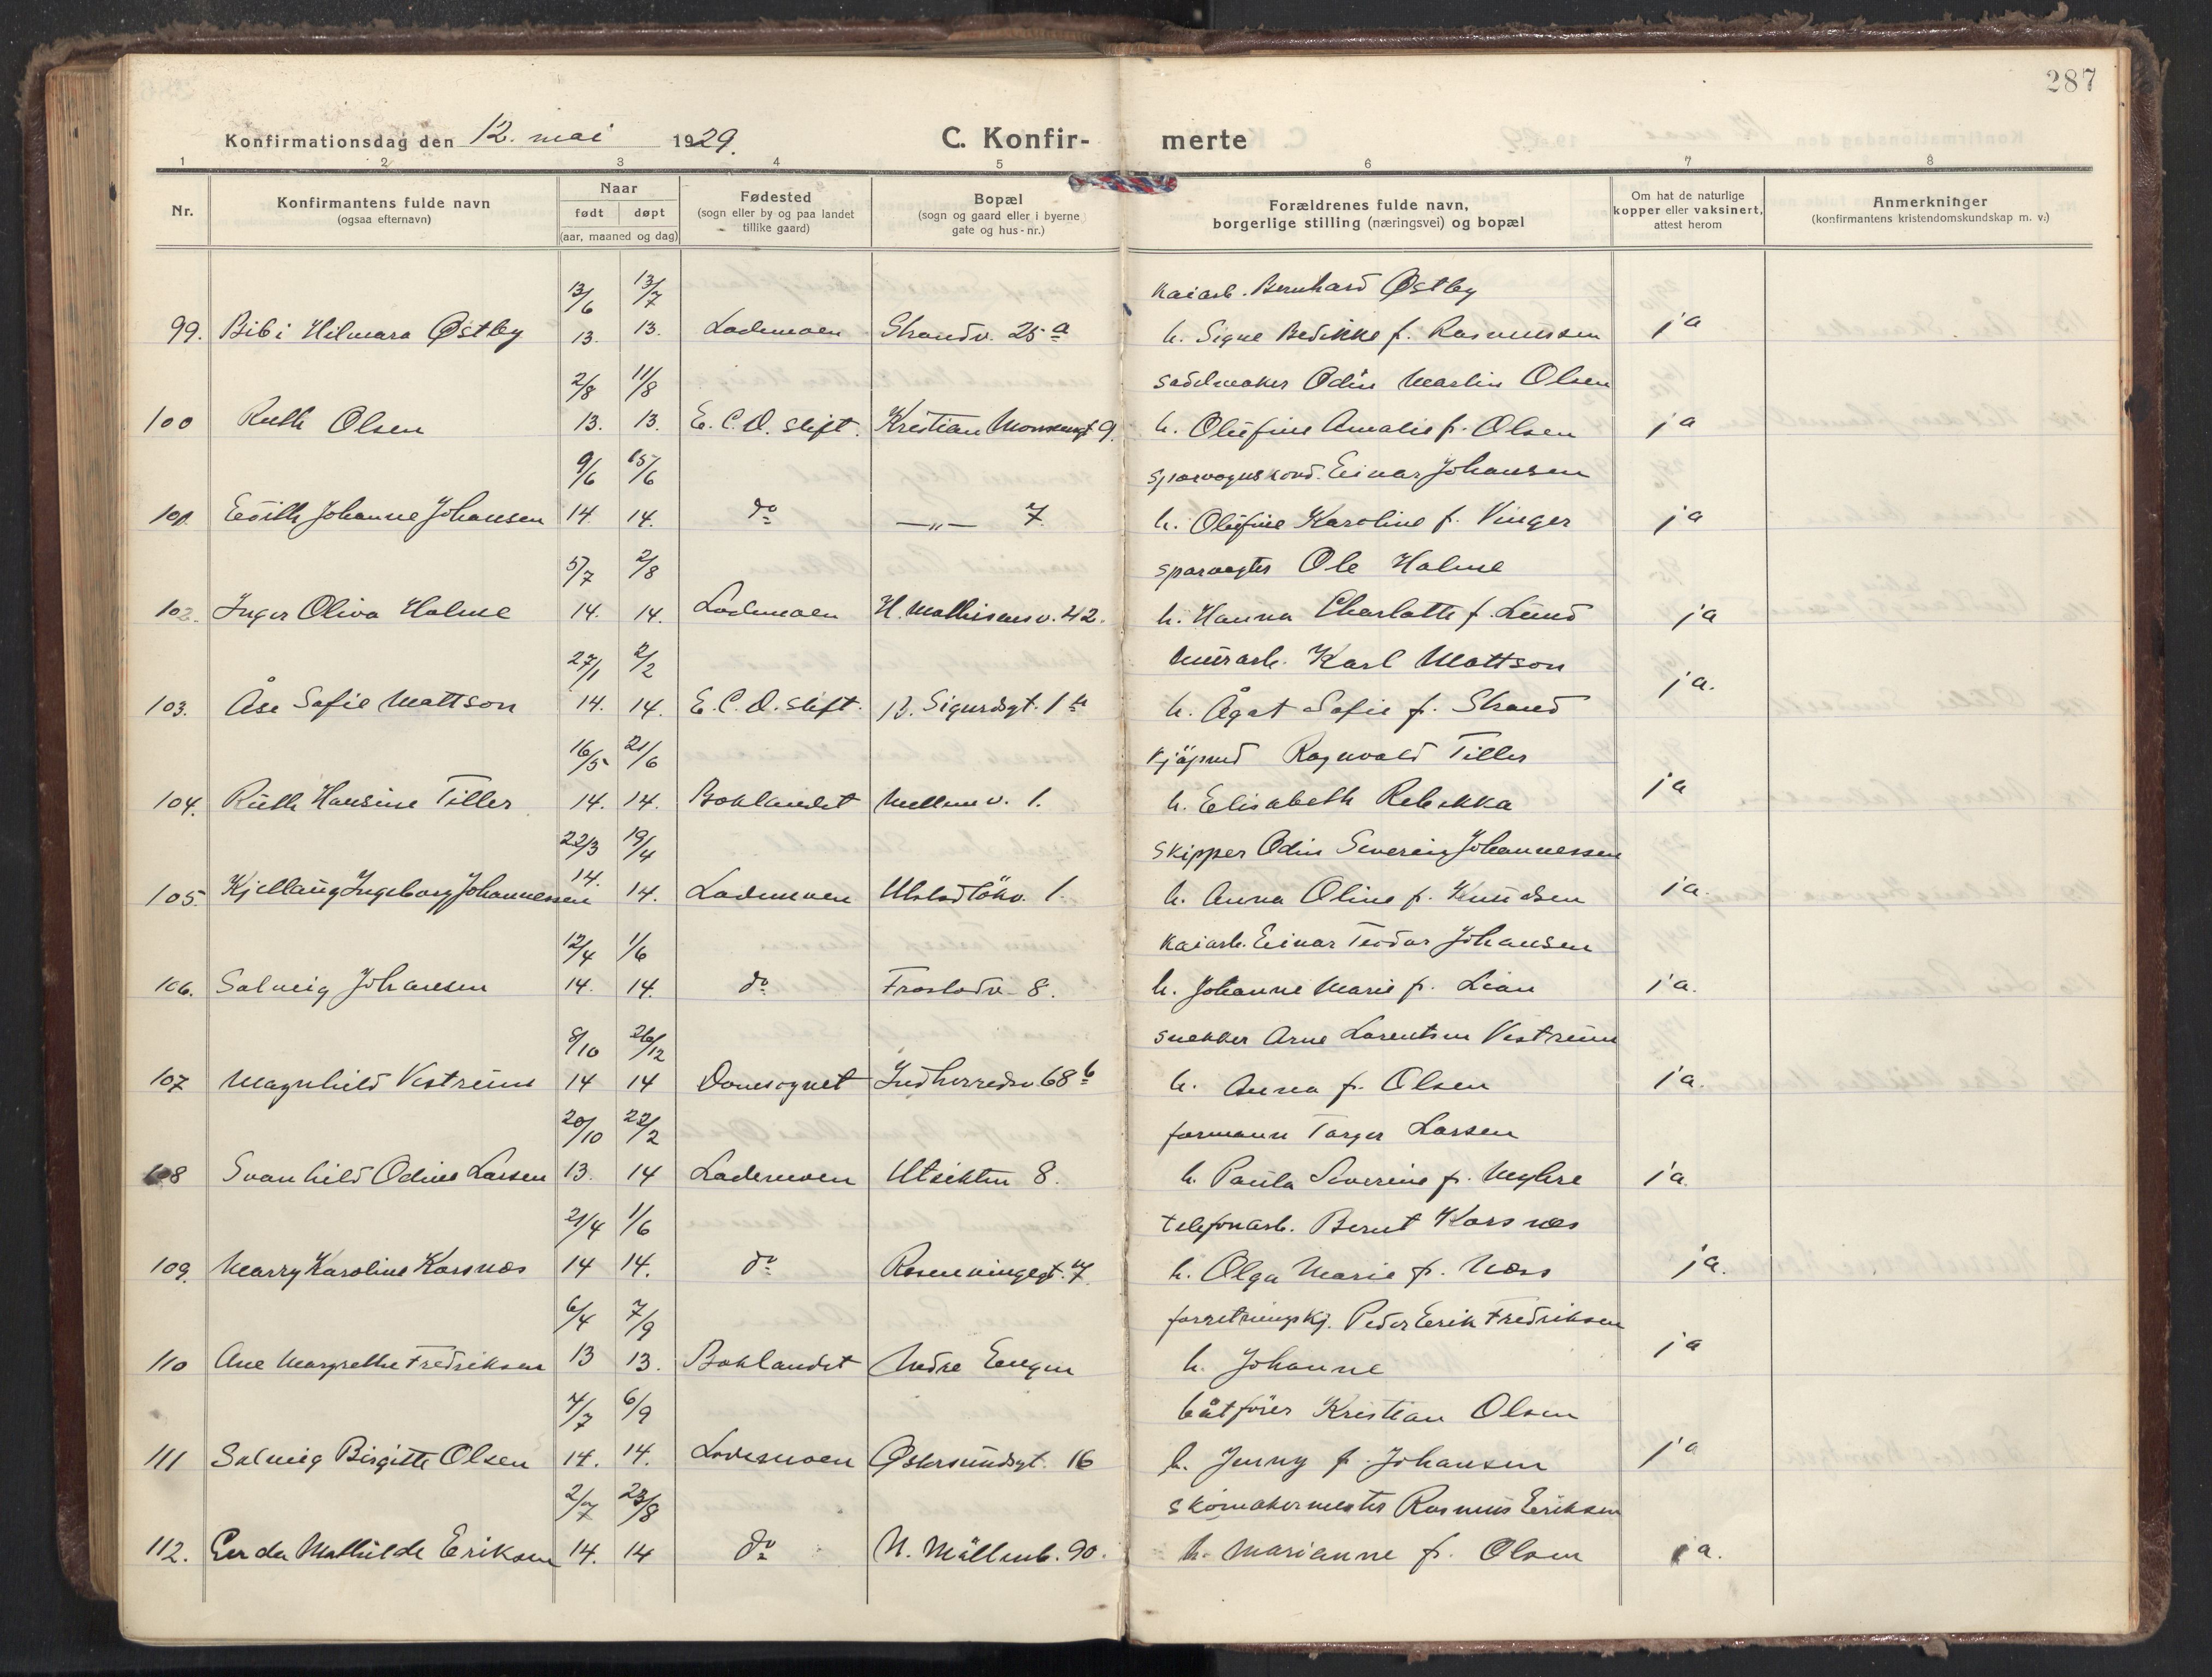 287
Konfirmationsdag den 12. mai 1929. C. Konfir- merte
1 2 3 4 5 6 7 8
Nr. Konfirmantens fulde navn (ogsaa efternavn) Naar født døpt (aar, maaned og dag) Fødested (sogn eller by og paa landet tillike gaard) Bopæl (sogn og gaard eller i byerne gate og hus-nr.) Forældrenes fulde navn, borgerlige stilling (næringsvei) og bopæl Om hat de naturlige kopper eller vaksinert, attest herom Anmerkninger (konfirmantens kristendomskundskap m. v.)
13/6 13/7 Kaiarb. Bernhard Østby
99. Bibi Hilmara Østby 13. 13. Lademoen Strandv. 25 a h. Signe f. Rasmussen ja
2/8 11/8 Sadelmaker Odin Martin Olsen
100 Ruth Olsen 13. 13. E. C. D. stift. Kristian Monsensgt 9. h. Olufine Amalie f. Olsen ja
9/6 15/6 Sporvognskond. Einar Johansen
101. Edith Johanne Johansen 14. 14. do —„— 7. h. Olufine Karoline f. Vinger ja
5/7 2/8 sporvogter Ole Holme
102. Inger Oliva Holme 14. 14. Lademoen H. Mathisensv. 42. h. Hanna Charlotte f. Lund ja
27/1 2/2 Murarb. Karl Mattson
103. Åse Sofie Mattson 14. 14. E. C. D. stift. B. Sigurdsgt. 1 h. Ågot Sofie f. Strand ja.
16/5 21/6 Kjøpmd Ragnvald Tiller
104. Ruth Hansine Tiller 14. 14. Baklandet Mellemv. 1. h. Elisabeth Rebekka ja
22/3 19/4 Skipper Odin Severin Johannessen
105. Kjellaug Ingeborg Johannessen 14. 14. Lademoen Ulstadløkv. 1. h. Anna Oline f. Knudsen ja.
12/4 1/6 Kaiarb. Einar Teodor Johansen
106. Solveig Johansen 14. 14. do Frostadv. 8. h. Johanne Marie f. Lian ja.
8/10 26/12 Snekker Arne Lorentsen Vestrum
107 Magnhild Vestrum 14 14 Domsognet Indherredsv. 68 b h. Anna f. Olsen ja.
20/10 22/2 formann Torger Larsen
108 Svanhild Odine Larsen 13. 14 Lademoen Utsikten 8. h. Paula Severine f. Myhre ja.
21/4 1/6 telefonarb. Bernt Korsnes
109. Marry Karoline Korsnæs 14 14. do Rosenvingesgt. 7. h. Olga Marie f. Næss ja.
6/4 7/9 forretningskj. Peder Erik Fredriksen
110 Ane Margrethe Fredriksen 13 13. Baklandet Nedre Eengen h. Johanne ja
7/7 6/9 båtfører Kristian Olsen
111 Solveig Birgitte Olsen 14. 14. Lademoen Østersundsgt. 16 h. Jenny f. Johansen ja
2/7 23/8 Skomakermester Rasmus Eriksen
112. Gerda Mathilde Eriksen 14. 14 do N. Møllenb. 90. h. Marianne f. Olsen ja.